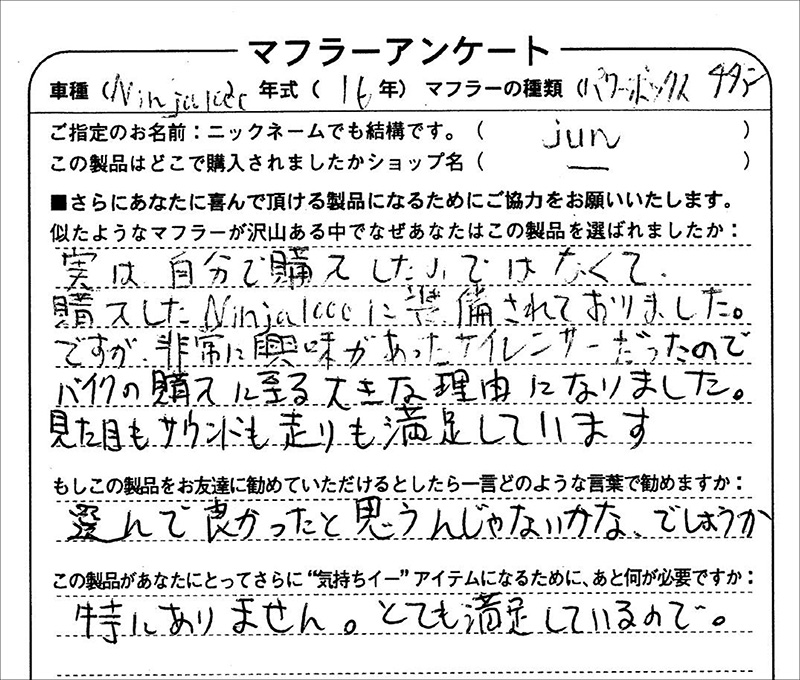 マフラーアンケート
車種（Ninja1000 年式（16年）マフラーの種類（パワーボックス チタン
ご指定のお名前：ニックネームでも結構です。（ jun ）
この製品はどこで購入されましたかショップ名（ ー ）
■さらにあなたに喜んで頂ける製品になるためにご協力をお願いいたします。
似たようなマフラーが沢山ある中でなぜあなたはこの製品を選ばれましたか：
実は自分で購入したのではなくて、
購入したNinja1000に装備されておりました。
ですが、非常に興味があったサイレンサーだったので
バイクの購入に至る大きな理由になりました。
見た目もサウンドも走りも満足しています
もしこの製品をお友達に勧めていただけるとしたら一言どのような言葉で勧めますか：
選んで良かったと思うんじゃないかな、でしょうか
この製品があなたにとってさらに“気持ちイー”アイテムになるために、あと何が必要ですか：
特にありません。とても満足しているので。